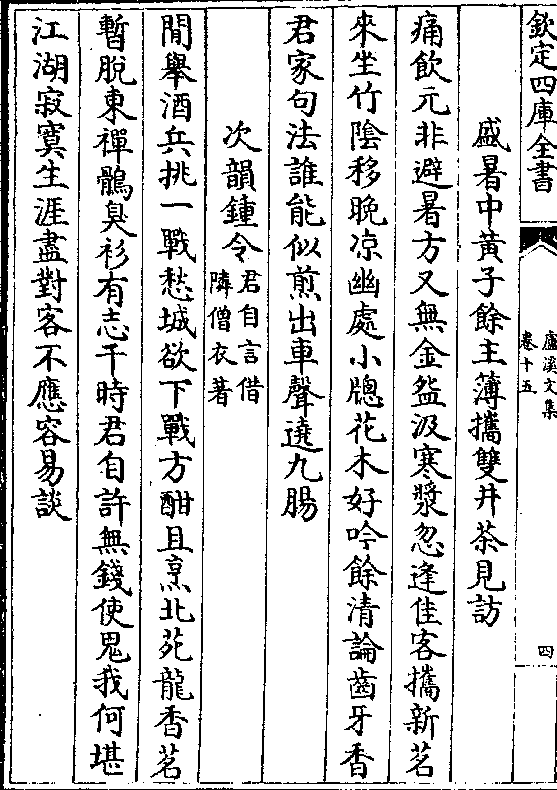 欽定四庫全書
盧溪文集
卷十五
四
盛暑中黃子餘主簿攜雙井茶見訪
痛飲元非避暑方又無金盆汲寒漿忽逢佳客攜新茗
來坐竹陰移晚凉幽處小牕花木好吟餘清論齒牙香
君家句法誰能似煎出車聲遶九腸
次韻鍾令君自言借隣僧衣著
閒舉酒兵挑一戰愁城欲下戰方酣且烹北苑龍香茗
暫脫東禪鶻臭衫有志干時君自許無錢使鬼我何堪
江湖寂寞生涯盡對客不應容易談